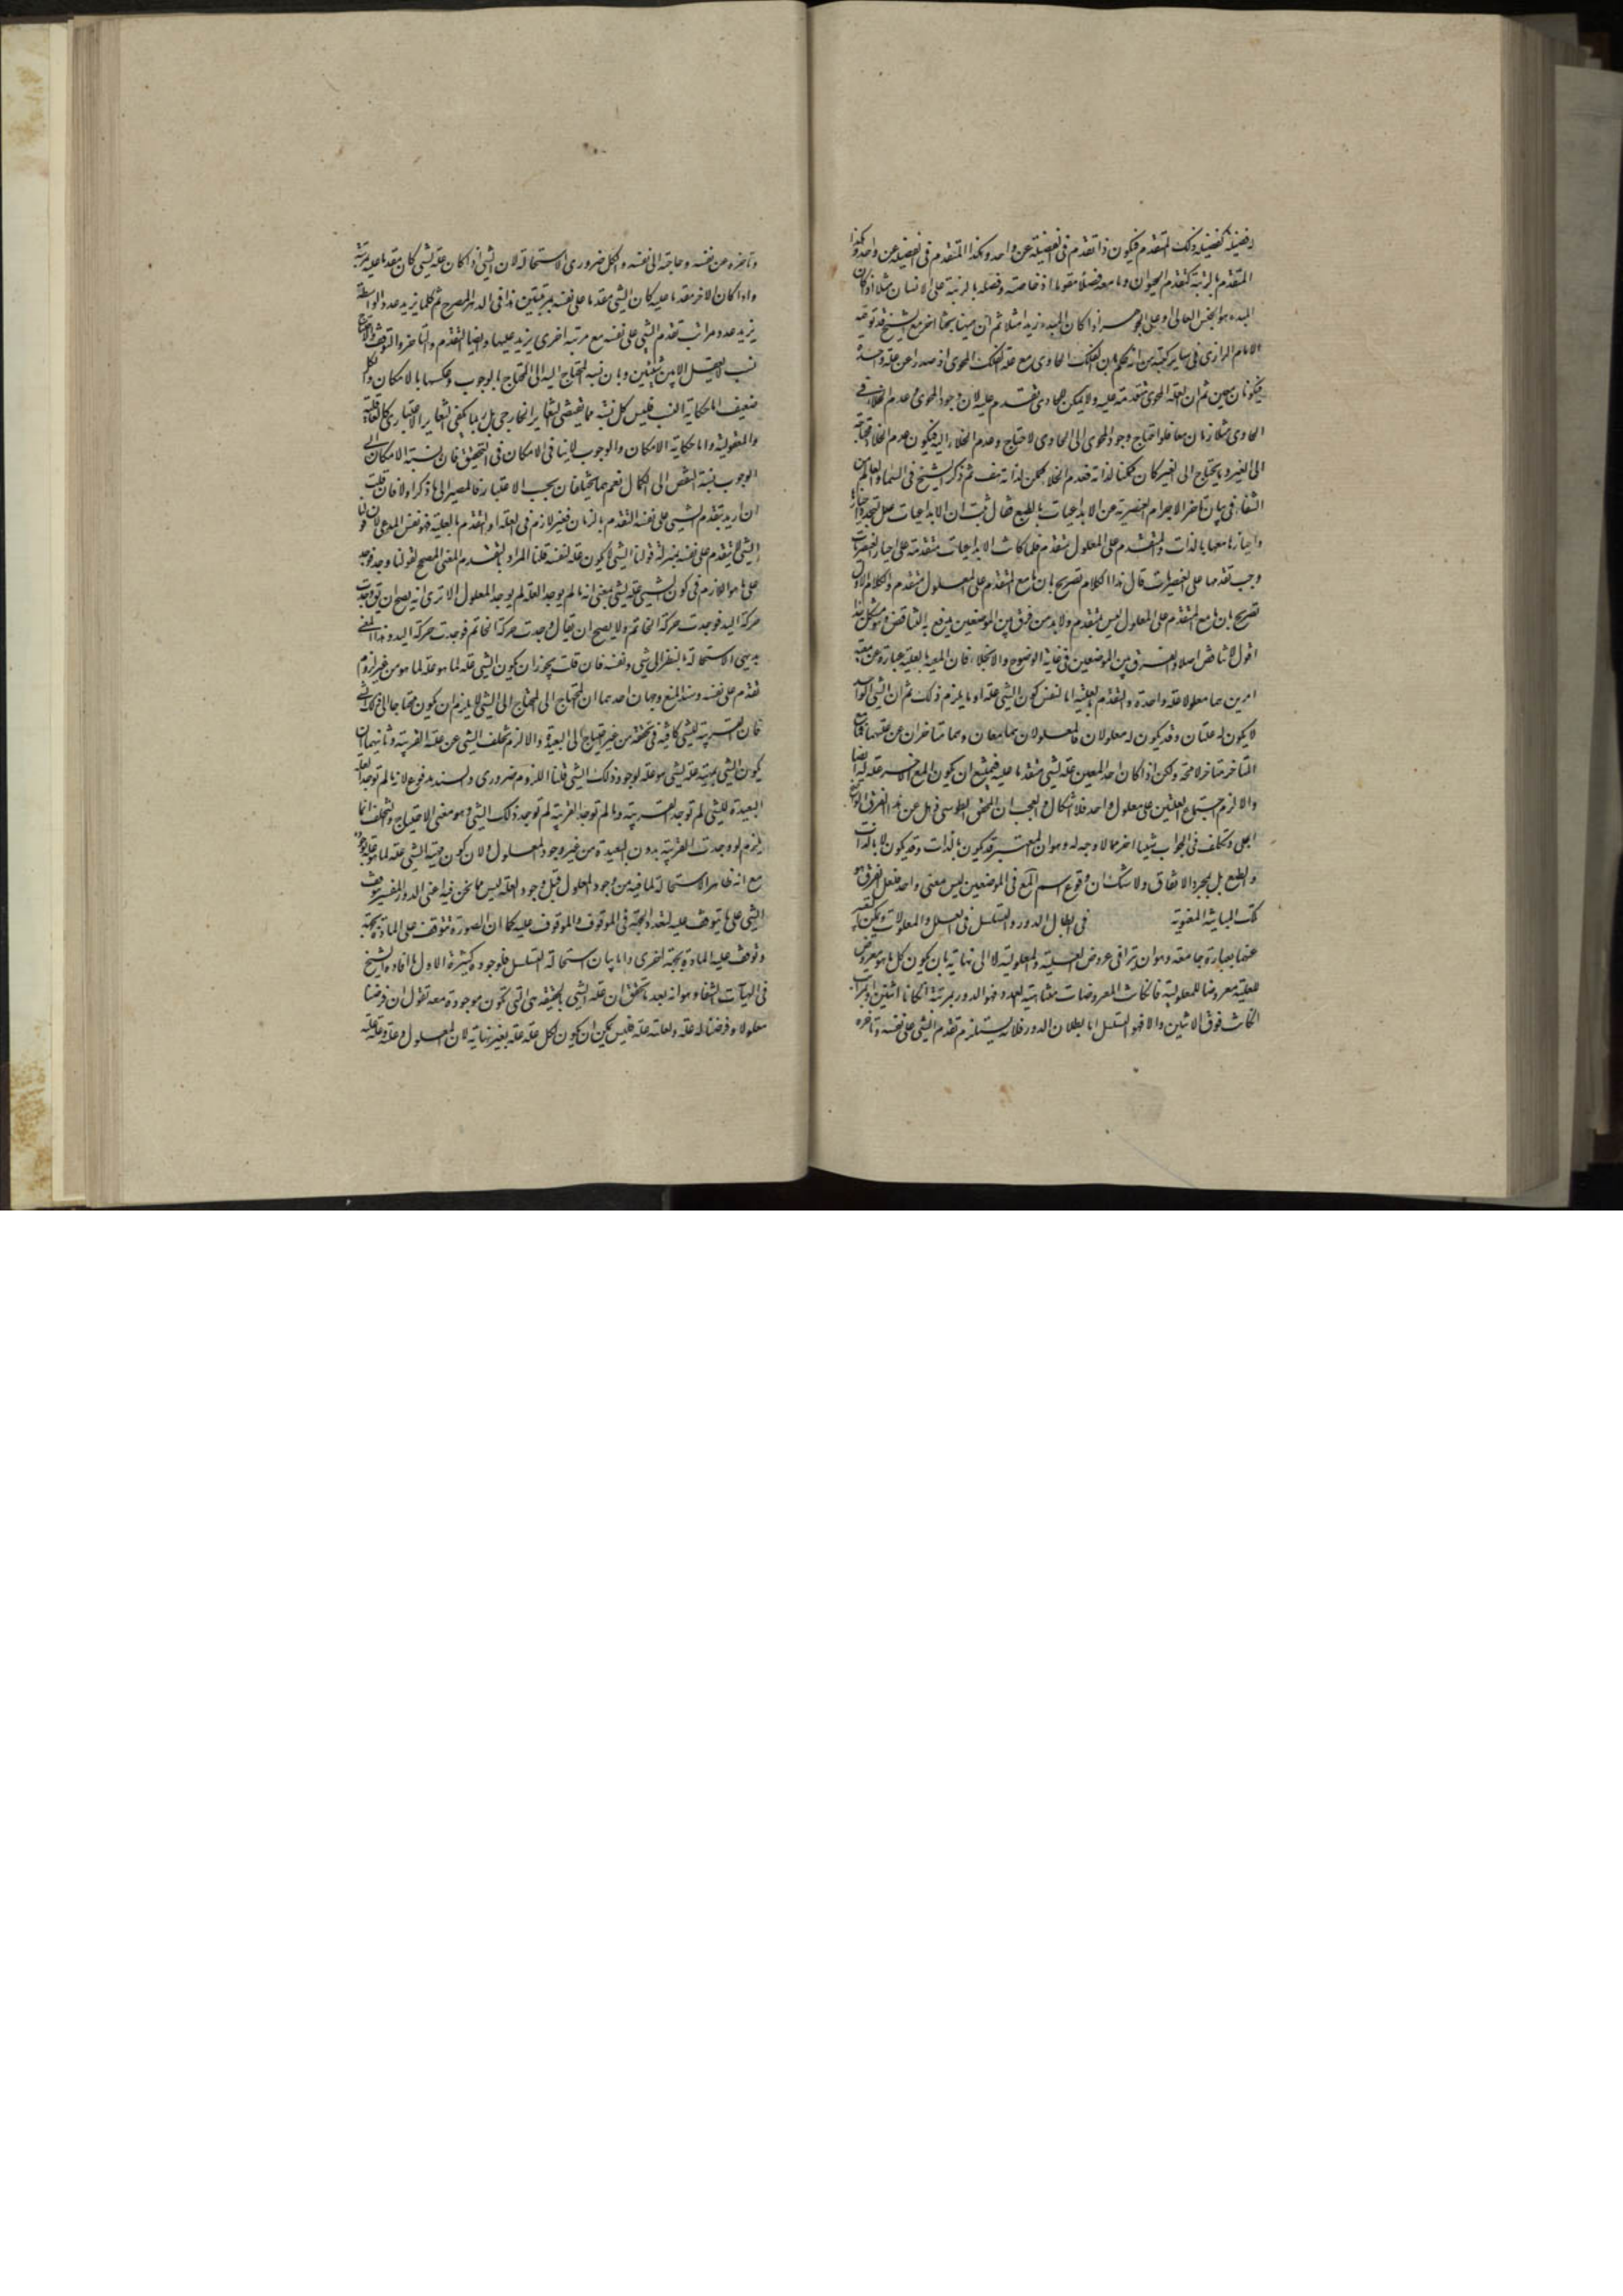 لفضيلة كفضيلة ذلك المتقدم فيكون ذا تقدم فى الفضيلة عن واحد وهكذا المتقدم فى الفضيلة عن واحد وكذا
المتقدم بالرتبة كتقدم الحيوان وما معه فضلا مقوما اذ خاصته وفصله بالرتبة على الانسان مثلا اذ كان
المبدء هو الجنس العالى او على الجوهر اذا كان المبدء زيدا مثلا ثم ان ههنا بحثا اخر مع الشيخ قد توجه
الامام الرازى فى ساير كتبه من انه حكم بان الفلك الحاوى مع علة الفلك المحوى اذ صدرا عن علة واحدة
فيكونان معين ثم ان لعلة المحوى متقدمة عليه ولا يمكن للحاوى تقدم عليه لان وجود المحوى وعدم الخلاء فى
الحاوى متلازمان معا فلو احتاج وجود المحوى الى الحاوى لاحتاج وعدم الخلاء اليه فيكون عدم الخلاء محتاجا
الى الغير وما يحتاج الى الغير كان ممكنا لذاته فعدم الخلاء ممكن لذاته هف ثم ذكر الشيخ فى السماء والعالم من
الشفاء فى بيان تاخر الاجرام العنصرية عن الابداعيات بالطبع فقال ثبت ان الابداعيات علل لتحدد احيازها
واحيازها معها بالذات والمتقدم على المعلول متقدم فلما كانت الابداعيات متقدمة على احياز العنصريات
وجب تقدمها على العنصريات قال هذا الكلام تصريح بان ما مع المتقدم على المعلول متقدم والكلام الاول
تصريح بان ما مع المتقدم على المعلول ليس بمتقدم ولا بد من فرق بين الموضعين يندفع به التناقض وهو مشكل هذا
اقول لا تناقض اصلا والفرق بين الموضعين فى غاية الوضوح والانجلاء فان المعية بالعلية عبارة عن معية
امرين هما معلولا علة واحدة والتقدم بالعلية اما لنفس كون الشى علة او ما يلزم ذلك ثم ان الشى الواحد
لا يكون له علتان وقد يكون له معلولان فالمعلولان هما معان وهما متاخران عن علتهما فما مع
المتاخر متاخر لا محة ولكن اذا كان احد المعين علة لشى متقدما عليه فيمتنع ان يكون المع الاخر علة له ايضا
والا لزم اجتماع العلتين على معلول واحد فلا اشكال والعجب ان المحقق الطوسى ذهل عن هذا الفرق الواضح
الجلى وتكلف فى الجواب شيئا اخر مما لا وجه له وهو ان المعتبر قد يكون بالذات وقد يكون لا بالذات
والطبع بل بمجرد الاتفاق ولا شك ان وقوع اسم المع فى الموضعين ليس بمعنى واحد فلعل الفرق هو
تلك المباينة المعنوية فى ابطال الدور والتسلسل فى العلل والمعلولات ويمكن التعبير
عنها بعبارة جامعة وهو ان يترافى عروض العلية والمعلولية لا الى نهاية بان يكون كل ما هو معروض
للعلية معروضا للمعلولية فان كانت المعروضات متناهية العدد فهو الدور بمرتبة ان كانا اثنين او بمراتب
ان كانت فوق الاثنين والا فهو التسلسل اما بطلان الدور فلانه يستلزم تقدم الشى على نفسه وتاخره
وتاخره عن نفسه وحاجته الى نفسه والكل ضرورى الاستحالة لان الشى اذا كان علة لشى كان مقدما عليه بمرتبة
واذا كان الاخر مقدما عليه كان الشى مقدما على نفسه بمرتبتين هذا فى الدور المصرح ثم كلما يزيد عدد الواسطة
يزيد عدد مراتب تقدم الشى على نفسه مع مرتبة اخرى يزيد عليها وايضا التقدم والتاخر والتوقف والاحتياج
نسب لا يعقل الا بين شيئين وبان نسبة المحتاج اليه الى المحتاج بالوجوب وعكسها بالامكان والكل
ضعيف اما حكاية النسب فليس كل نسبة مما يقتضى التغاير الخارجى بل ربما يكفى التغاير الاعتبارى كالعاقلية
والمعقولية واما حكاية الامكان والوجوب لا ينافى الامكان فى التحقيق فان نسبة الامكان الى
الوجوب نسبة النقص الى الكمال نعم هما يختلفان بحسب الاعتبار فالمصير الى ما ذكر اولا فان قلت
ان اريد بتقدم الشى على نفسه التقدم بالزمان فغير لازم فى العلة او التقدم بالعلية فهو نفس المدعى لان قولنا
الشى لا يتقدم على نفسه بمنزلة قولنا الشى لا يكون علة لنفسه قلنا المراد بالتقدم المعنى المصحح لقولنا وجد فوجد
على ما هو اللازم فى كون الشى علة لشى بمعنى انه ما لم يوجد العلة لم يوجد المعلول الا ترى انه يصح ان يق وجدت
حركة اليد فوجدت حركة الخاتم ولا يصح ان يقال وجدت حركة الخاتم فوجدت حركة اليد وهذا المعنى
بديهى الاستحالة بالنظر الى شى ونفسه فان قلت يجوز ان يكون الشى علة لما هو علة لما هو من غير لزوم
تقدم على نفسه وسند المنع وجهان احدهما ان المحتاج الى المحتاج الى الشى لا يلزم ان يكون محتاجا الى ذلك الشى
فان القريبة للشى كافية فى تحققه من غير احتياج الى البعيدة والا لزم تخلف الشى عن علته القريبة وثانيهما ان
يكون الشى بمهيته علة لشى هو علة لوجود ذلك الشى قلنا اللزوم ضرورى والسند مدفوع لانه ما لم توجد العلة
البعيدة للشى لم توجد القريبة وما لم توجد القريبة لم توجد ذلك الشى وهو معنى الاحتياج والتخلف انما
يلزم لو وجدت القريبة بدون البعيدة من غير وجود المعلول ولان كون مهية الشى علة لما هو علة لوجوده
مع انه ظاهر الاستحالة لما فيه من وجود المعلول قبل وجود العلة ليس مما نحن فيه اعنى الدور المفسر بتوقف
الشى على ما يتوقف عليه لتعدد الجهة فى الموقوف والموقوف عليه كما ان الصورة تتوقف على المادة بجهة
وتوقف عليه المادة بجهة اخرى واما بيان استحالة التسلسل فلوجوه كثيرة الاول ما افاده الشيخ
فى الهيات الشفاء وهو انه بعد ما تحقق ان علة الشى بالحقيقة هى التى تكون موجودة معه تقول ان فرضنا
معلولا وفرضنا له علة ولعلته علة فليس يمكن ان يكون لكل علة علة بغير نهاية لان المعلول وعلته وعلة علته